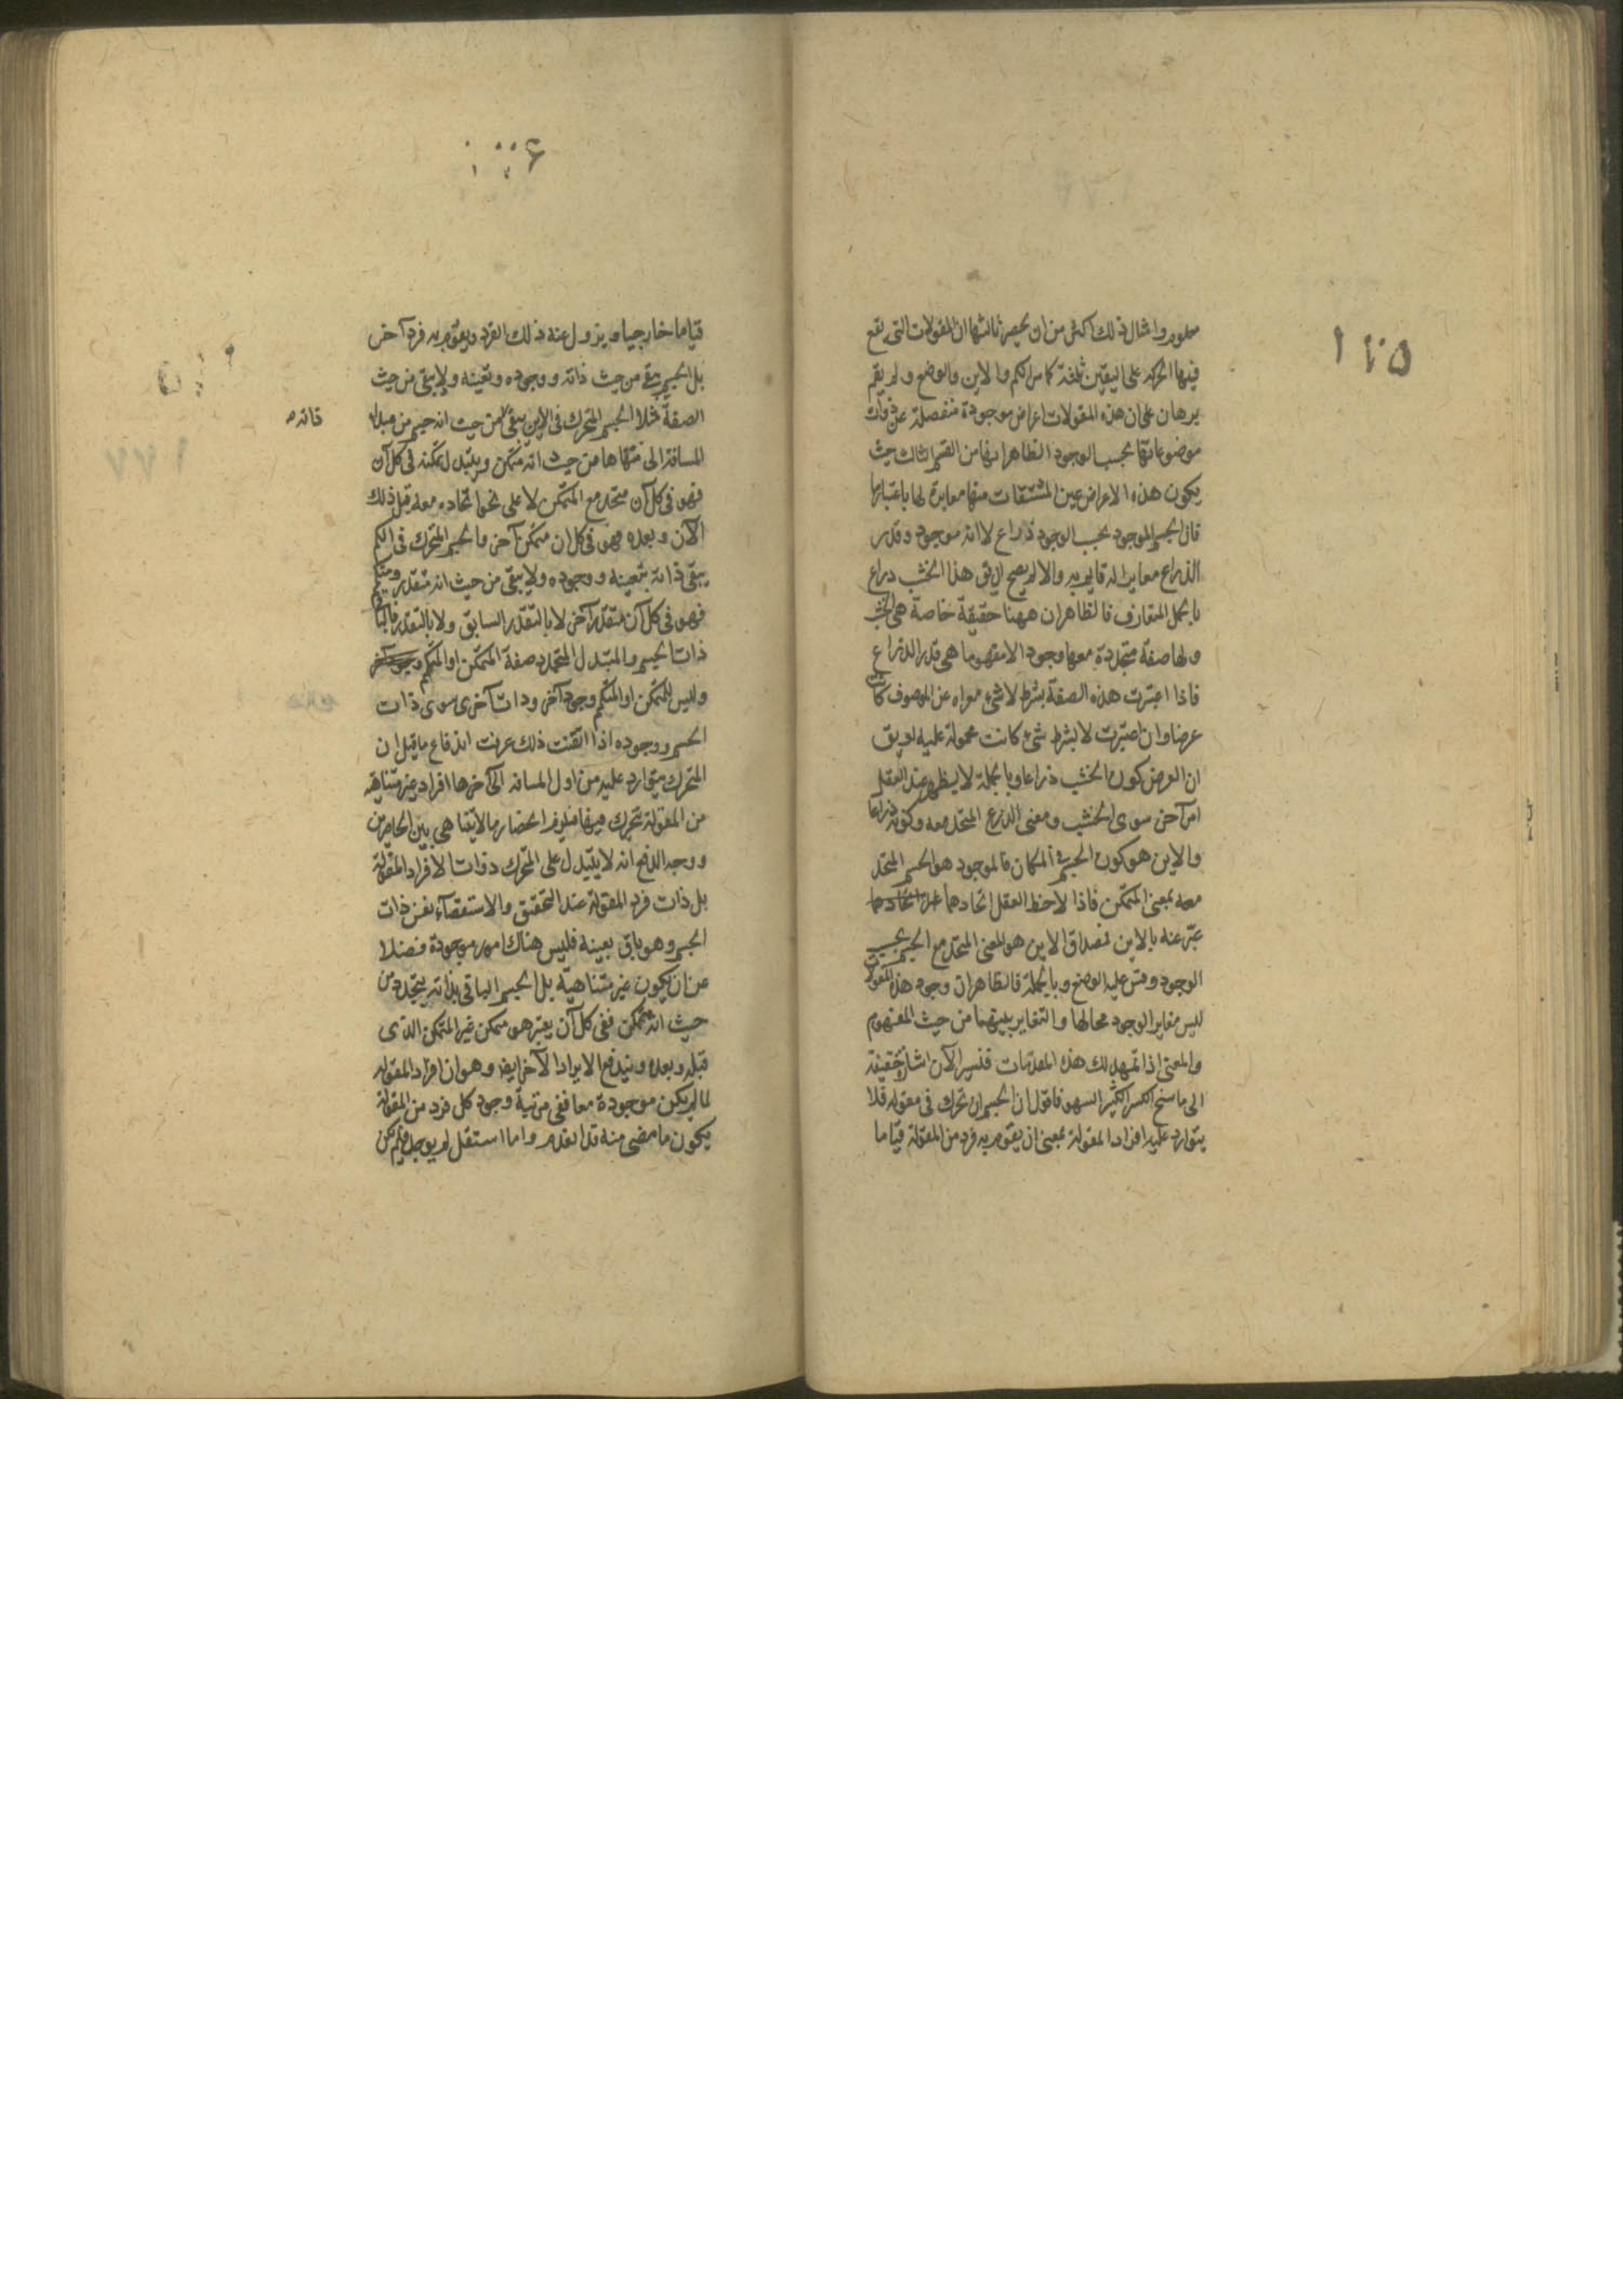 معلوم وامثال ذلك اكثر من ان يحصر ثالثها ان المقولات التى يقع
فيها الحركة على اليقين ثلثة كما مر الكم والاين والوضع ولم يقم
برهان على ان هذه المقولات اعراض موجودة منفصلة عن ذوات
موضوعاتها بحسب الوجود الظاهر انها من القسم الثالث حيث
يكون هذه الاعراض عين المشتقات منها مغايرة لها باعتبار ما
فان الجسم الموجود بحسب الوجود ذراع لا انه موجود وقدر
الذراع مغاير له قايم به والا لم يصح ان يق هذا الخشب ذراع
بالحمل المتعارف فالظاهر ان ههنا حقيقة خاصة هى الخشب
ولها صفة متحدة معها وجودا لا مفهوما هى قدر الذراع
فاذا اعتبرت هذه الصفة بشرط لا شئ معراه عن الموصوف كانت
عرضا وان اعتبرت لا بشرط شئ كانت محمولة عليه لو يق
ان العرض كون الخشب ذراعا وبالجملة لا يظهر عند العقل
امر آخر سوى الخشب ومعنى الذرع المتحد معه وكونه ذراعا
والاين هو كون الجسم فى المكان فالموجود هو الجسم المتحد
معه بمعنى المتمكن فاذا لاحظ العقل اتحادهما
عبّر عنه بالاين فصداق الاين هو المعنى المتحد مع الجسم بحسب
الوجود وقس عليه الوضع وبالجملة فالظاهر ان وجود هذه المقولات
ليس مغاير الوجود محالها والتغاير بينهما من حيث المفهوم
والمعنى اذا تمهد لك هذه المقدمات فنسير الآن اشارة خفيفة
الى ما سنح الكسر الكثير السهو فاقول ان الجسم ان تحرك فى مقوله فلا
يتوارد عليه افراد المقولة بمعنى ان يقوم به فرد من المقولة قياما
١٧٥
قياما خارجيا ويزول عنه ذلك الفرد ويقوم به فرد آخر
بل الجسم يبقى من حيث ذاته ووجوده وتعينه ولا يبقى من حيث
الصفة مثلا الجسم المتحرك فى الاين يبقى من حيث انه جسم من مبدا
المسافة الى منتهاها من حيث انه متمكن ويتبدل تمكنه فى كل آن
فهو فى كل آن متحد مع المتمكن لا على نحو اتحاده معه قبل ذلك
الآن وبعده فهو فى كل ان متمكن آخر والجسم المتحرك فى الكم
يبقى ذاته بتعينه ووجوده ولا يبقى من حيث انه متقدر ومتكم
فهو فى كل آن متقدر آخر لا بالتقدر السابق ولا بالتقدر فالباقى
ذات الجسم والمتبدل المتجدد صفة المتمكن او المتكم
وليس للمتمكن او المتكم وجود آخر وذات آخرى سوى ذات
الجسم ووجوده اذا اتقنت ذلك عرفت اندفاع ما قيل ان
المتحرك يتوارد عليه من اول المسافه الى آخرها افراد غير متناهيه
من المقولة يتحرك فيها فيلزم انحصار ما لا يتناهى بين الحاصرين
ووجه الدفع انه لا يتبدل على المتحرك ذوات الافراد المقولة
بل ذات فرد المقولة عند التحقيق والاستقصآء نفس ذات
الجسم وهو باق بعينه فليس هناك امور موجودة فضلا
عن ان يكون غير متناهية بل الجسم الباقى بذاته يتجدد من
حيث انه متمكن ففى كل آن يعتبر هو متمكن غير المتمكن الذى
قبله وبعده ويندفع الايراد الآخر ايضا وهو ان افراد المقوله
لما لم يكن موجودة معا ففى مرتبة وجود كل فرد من المقولة
يكون ما مضى منه قد انعدم واما استقبل لم يوجد فلم يكن